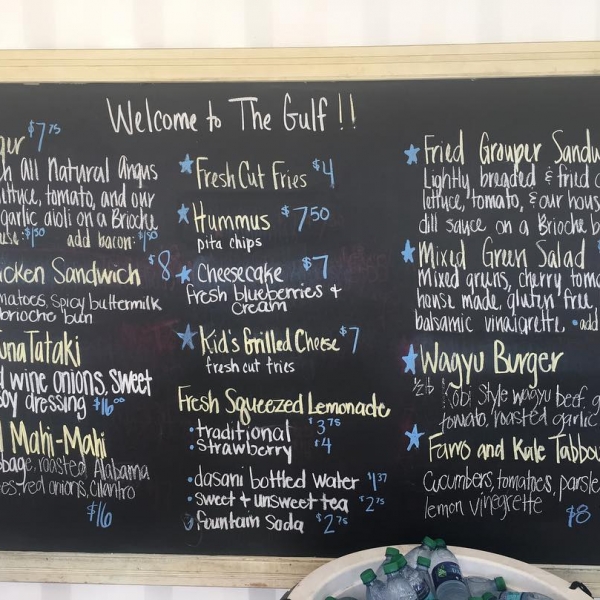 Welcome to The Gulf !!
ger $7 75
ch All Natural Angus
lettuce, tomato, and our
garlic aioli on a Brioche
$1 50 add bacon: $1 50
icken Sandwich $8
matoes, spicy buttermilk
brioche bun
Tuna Tataki
d wine onions, sweet
soy dressing $16 00
d Mahi-Mahi
bbage, roasted Alabama
es, red onions, cilantro
$16
Fresh Cut Fries $4
Hummus $7 50
pita chips
Cheesecake $7
fresh blueberries &
cream
Kid's Grilled Cheese $7
fresh cut fries
Fresh Squeezed Lemonade
• traditional $3 75
• strawberry $4
• dasani bottled water $1 37
• sweet & unsweet tea $2 75
• fountain soda $2 75
Fried Grouper Sandw
Lightly breaded & fried
lettuce, tomato, & our hous
dill sauce on a Brioche b
Mixed Green Salad
Mixed greens, cherry toma
house made, gluten free
balsamic vinaigrette. • add
Wagyu Burger
1/2 lb Kobi Style wagyu beef, g
tomato, roasted garlic
Farro and Kale Tabbou
Cucumbers, tomatoes, parsle
lemon vinegrette $8